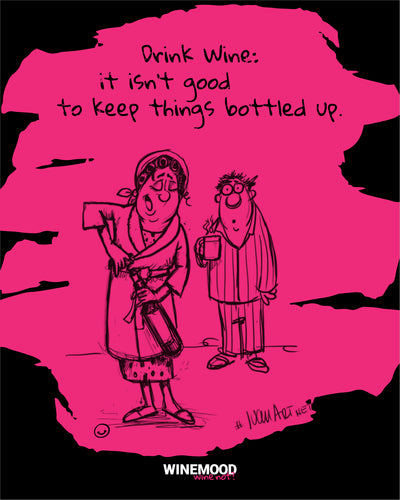 Drink Wine:
it isn't good
to keep things bottled up.
WINEMOOD
wine not?